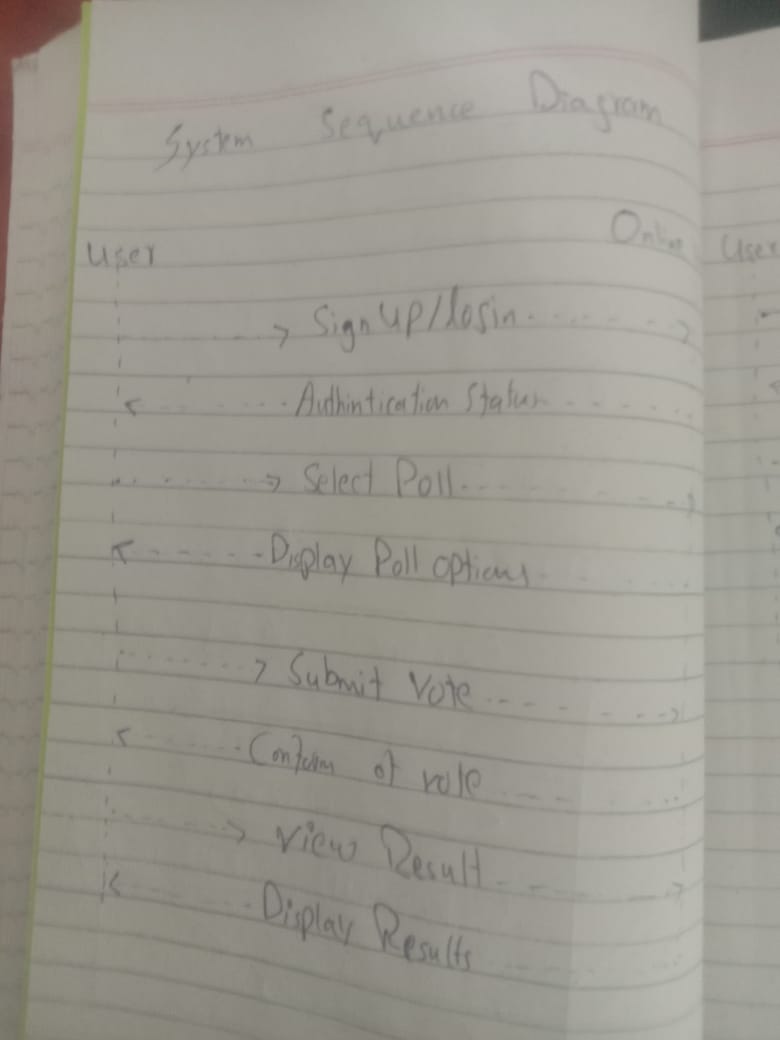 System Sequence Diagram
User Online User
Sign UP/login
Authintication Status
Select Poll
Display Poll options
Submit Vote
of
View Result
Display Results